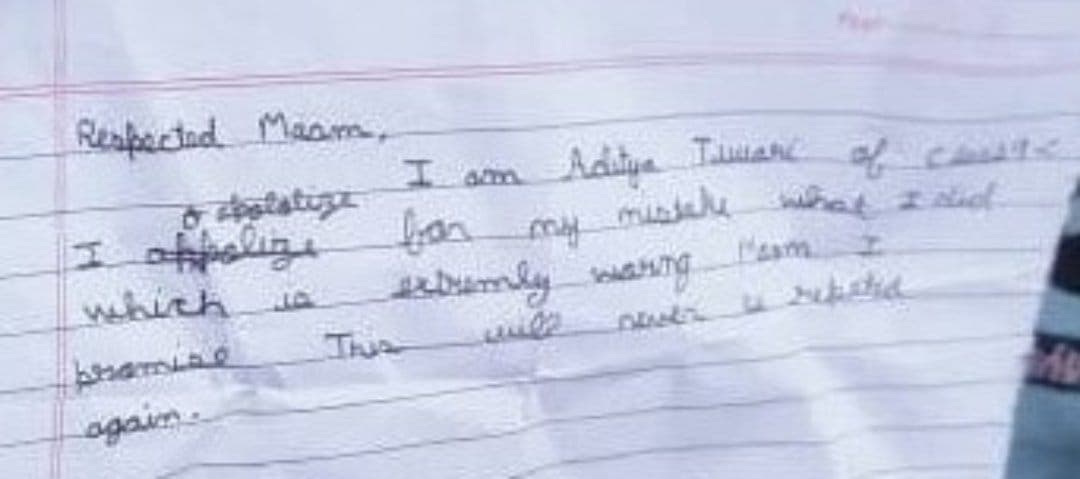 Respected Maam,
I am Aditya Tiwari of
apolotize
I appolize for my mistake what I did
which is extremly warng Maam I
promise This will never is repeted
again.